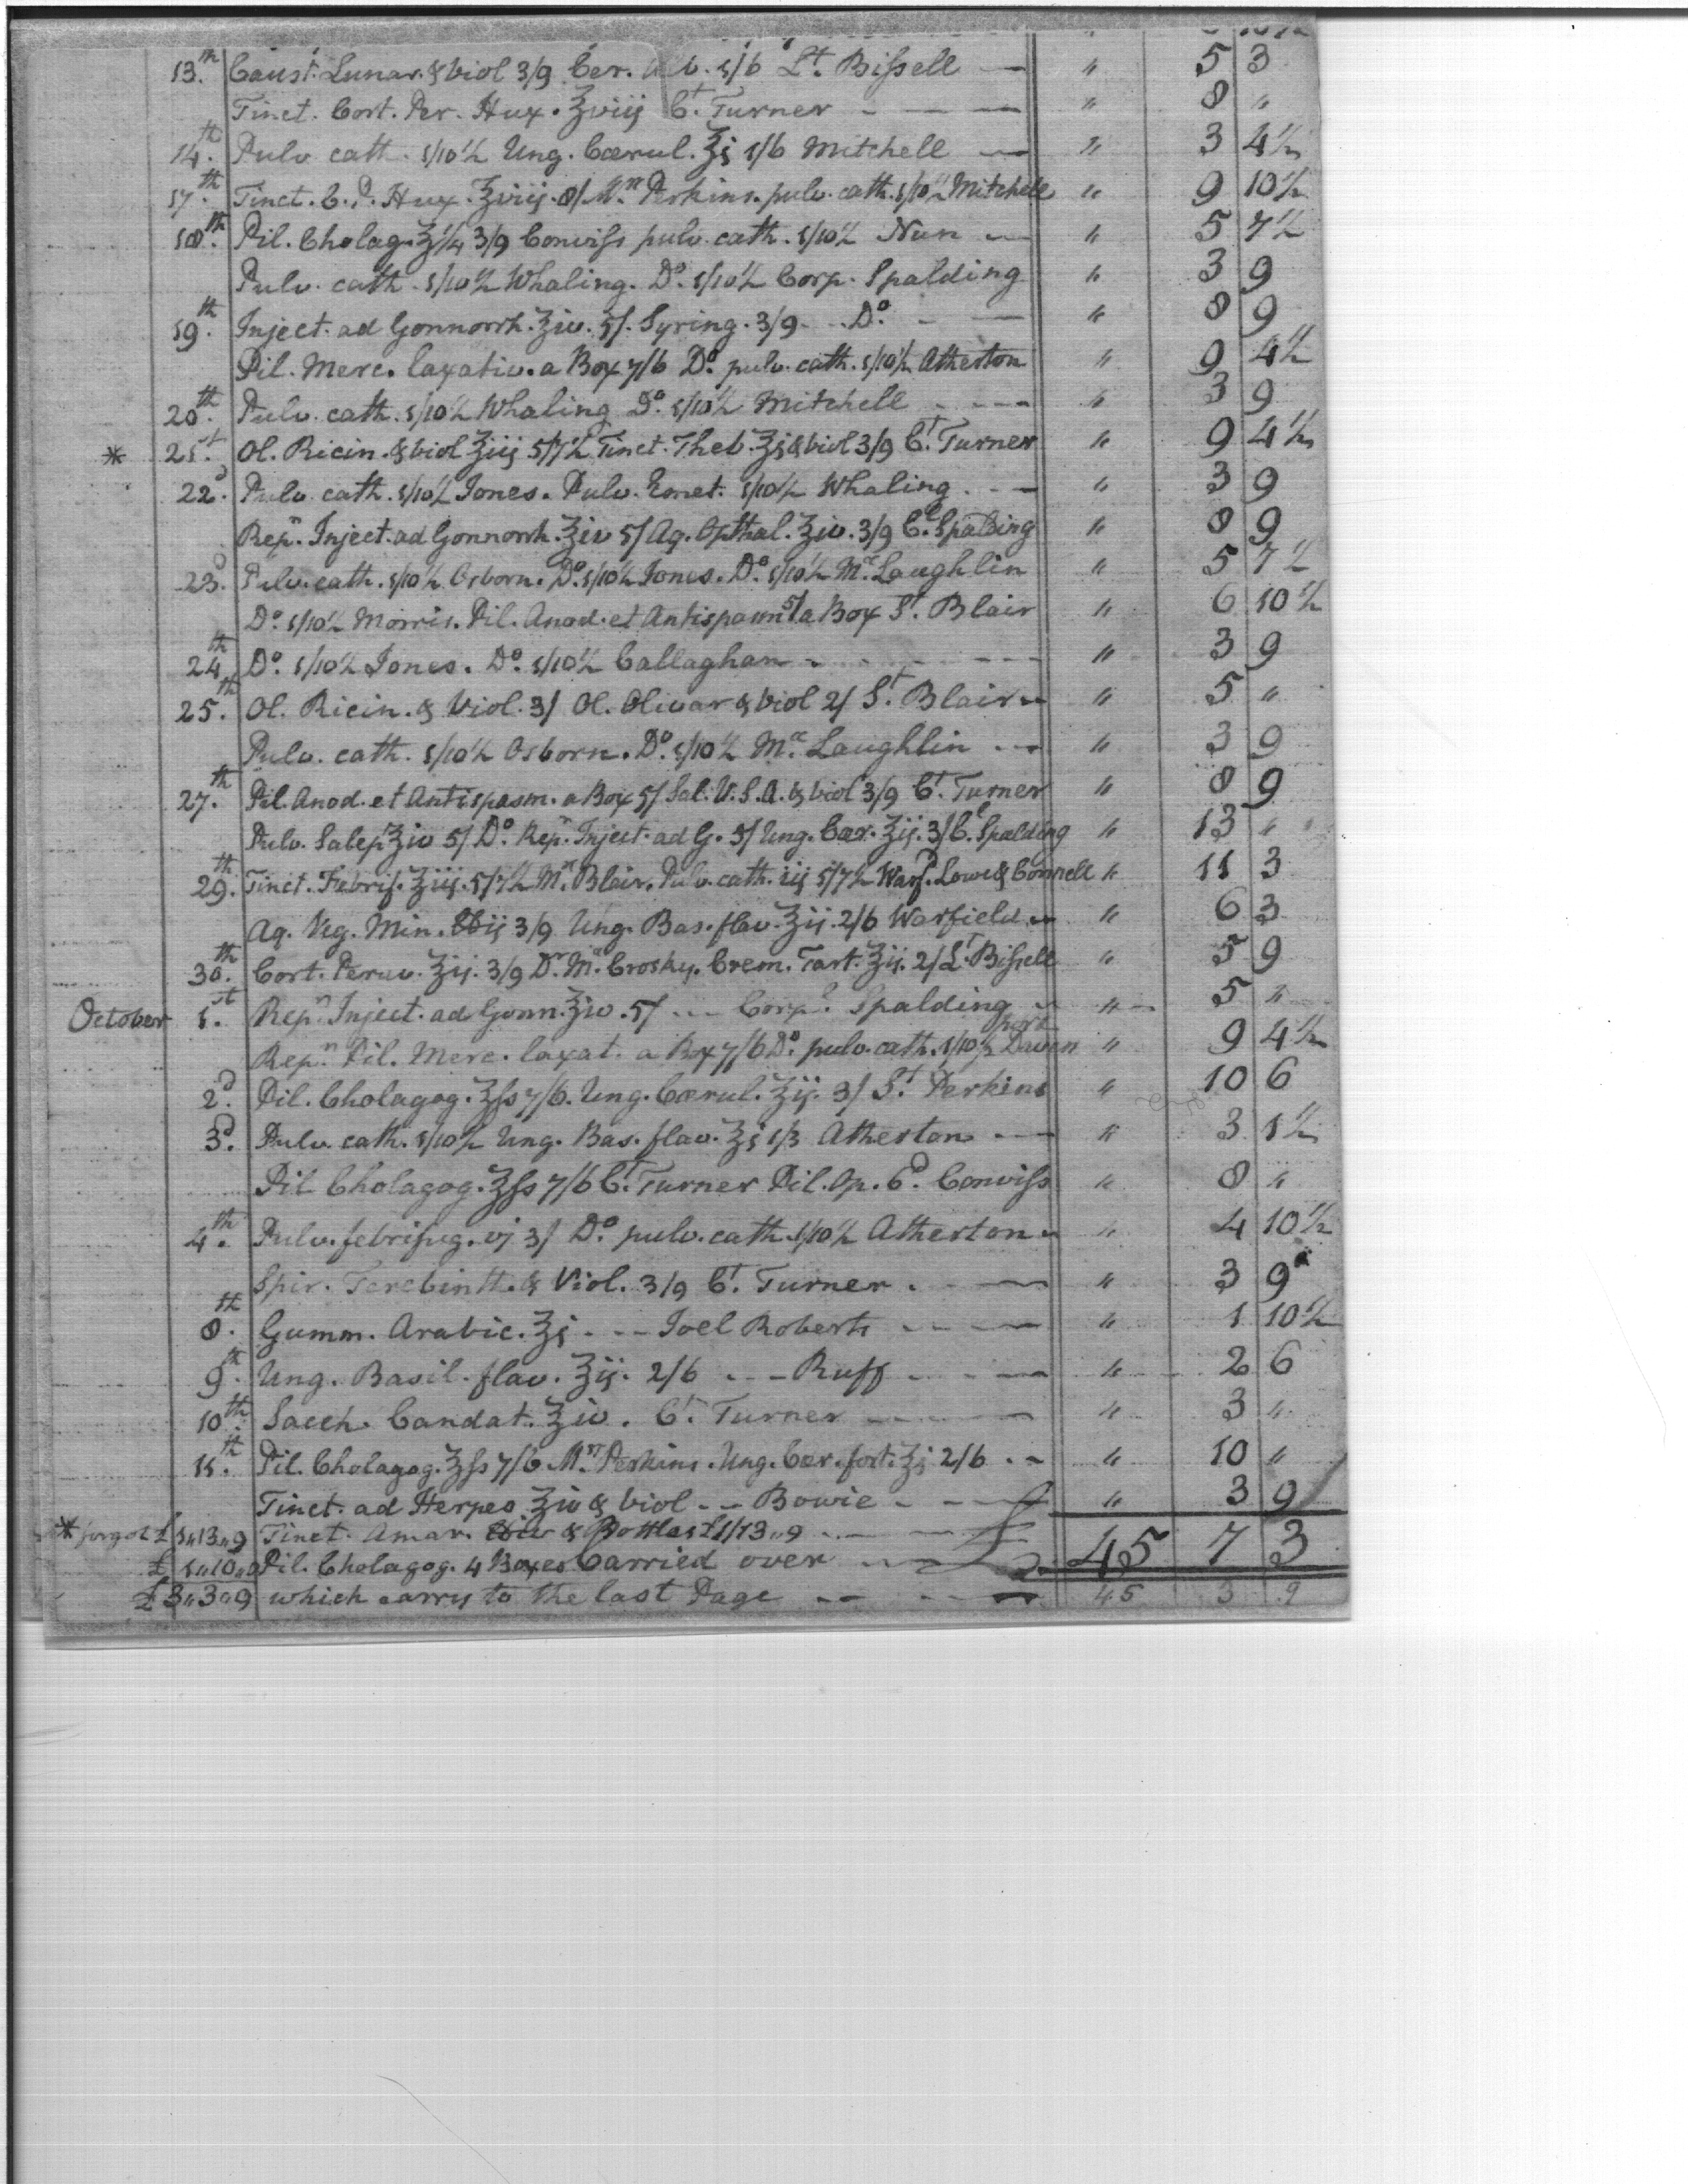 13.th Caust. Lunar. & viol 3/9 Cer. 1/6 Lt. Bissell — " 5 3
Tinct. Cort. Per. Hux. ℥viij Ct. Turner - — — " 8 "
14.th Pulv cath. 1/10½ Ung. Cœrul. ℥j 1/6 Mitchell — " 3 4½
17.th Tinct. C. P. Hux. ℥viij. 8/ Mrs. Perkins. pulv. cath. 1/10½ Mitchell " 9 10½
18.th Pil. Cholag. ℥¼ 3/9 Conviss pulv. cath. 1/10½ Nun — " 5 7½
Pulv. cath. 1/10½ Whaling. Do. 1/10½ Corp. Spalding " 3 9
19.th Inject. ad Gonnorrh. ℥iv. 5/. Syring. 3/9 - . Do. - — " 8 9
Pil. Merc. laxativ. a Box 7/6 Do. pulv. cath. 1/10½ Atherton " 9 4½
20.th Pulv. cath. 1/10½ Whaling Do. 1/10½ Mitchell - - - - " 3 9
* 21.st Ol. Ricin. & viol ℥iij 5/7½ Tinct. Theb. ℥j & viol 3/9 Ct. Turner " 9 4½
22.d Pulv. cath. 1/10½ Jones. Pulv. Emet. 1/10½ Whaling . - — " 3 9
Repn. Inject. ad Gonnorrh. ℥iv 5/ Aq. Opthal. ℥iv. 3/9 Cl. Spalding " 8 9
23.d Pulv. cath. 1/10½ Osborn. Do. 1/10½ Jones. Do. 1/10½ Mc. Laughlin " 5 7½
Do. 1/10½ Morris. Pil. Anod. et Antispasm 5/ a Box St. Blair " 6 10½
24.th Do. 1/10½ Jones. Do. 1/10½ Callaghan - . . - - - - " 3 9
25.th Ol. Ricin. & Viol. 3/ Ol. Olivar & viol 2/ St. Blair — " 5 "
Pulv. cath. 1/10½ Osborn. Do. 1/10½ Mc. Laughlin - — " 3 9
27.th Pil. Anod. et Antispasm. a Box 5/ Sal. V. S. A. & viol 3/9 Ct. Turner " 8 9
Pulv. Salep ℥iv 5/ Do. Repn. Inject. ad G. 5/ Ung. Cær. ℥ij. 3/ Cl. Spalding " 13 "
29.th Tinct. Febrif. ℥iij. 5/7½ Mrs. Blair. Pulv. cath. iij 5/7½ Warfd. Lowe & Connell " 11 3
Aq. Veg. Min. ℔ij 3/9 Ung. Bas. flav. ℥ij. 2/6 Warfield — " 6 3
30.th Cort. Peruv. ℥ij. 3/9 Dr. Mc. Crosky. Crem. Tart. ℥ij. 2/ Lt. Bissell " 5 9
October 1.st Repn. Inject. ad Gonn. ℥iv. 5/ - - - Corpl. Spalding — " 5 "
Repn. Pil. Merc. laxat. a Box 7/6 Do. pulv. cath. 1/10½ Davenport " 9 4½
2.d Pil. Cholagog. ℥ss 7/6. Ung. Cœrul. ℥ij. 3/ St. Perkins " 10 6
3.d Pulv. cath. 1/10½ Ung. Bas. flav. ℥j 1/3 Atherton - — " 3 1½
Pil Cholagog. ℥ss 7/6 Ct. Turner Pil. Op. 6d. Conviss " 8 "
4.th Pulv. febrifug. vj 3/ Do. pulv. cath. 1/10½ Atherton — " 4 10½
Spir. Terebinth. & Viol. 3/9 Ct. Turner . — — " 3 9
8.th Gumm. Arabic. ℥j - - - Joel Roberts - - - — " 1 10½
9.th Ung. Basil. flav. ℥ij. 2/6 - - - Ruff - . . - — " 2 6
10.th Sacch. Candat. ℥iv. Ct. Turner — — " 3 "
11.th Pil. Cholagog. ℥ss 7/6 Mrs. Perkins. Ung. Cœr. fort. ℥j 2/6 . - " 10 "
Tinct. ad Herpes ℥iv & viol - - Bowie - - — " 3 9
* forgot £ 1„13„9 Tinct. Amar. & Bottles £1/13„9 - - — £ 45 7 3
£ 1„10„0 Pil. Cholagog. 4 Boxes Carried over
£ 3„3„9 which carry to the last Page — - — 45 3 9